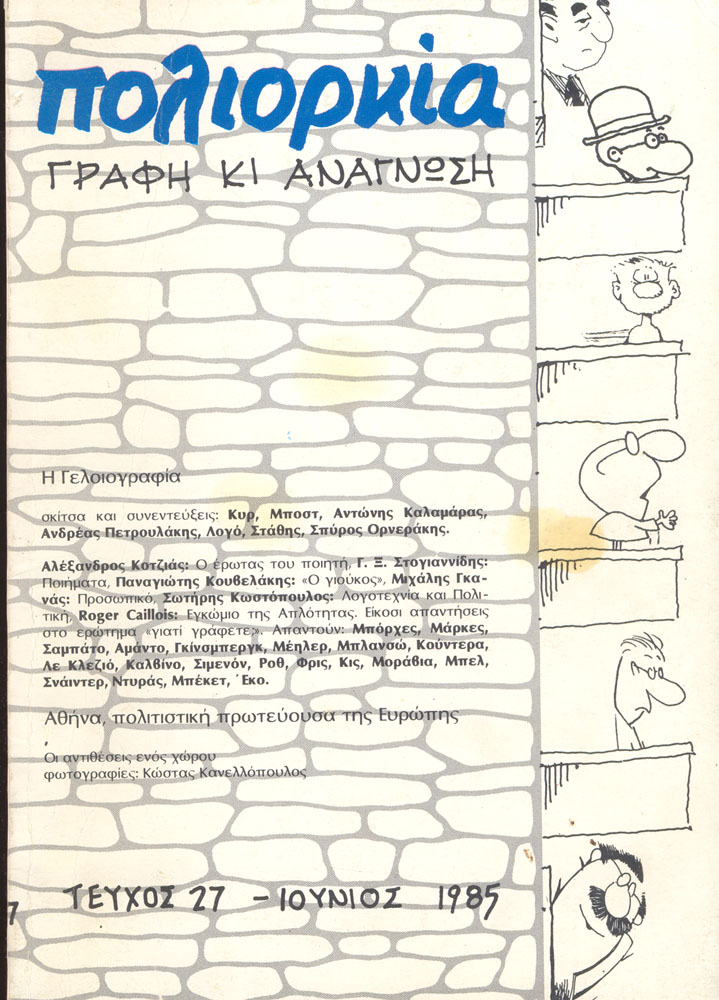 πολιορκία
ΓΡΑΦΗ ΚΙ ΑΝΑΓΝΩΣΗ
Η Γελοιογραφία
σκίτσα και συνεντεύξεις: Κυρ, Μποστ, Αντώνης Καλαμάρας,
Ανδρέας Πετρουλάκης, Λογό, Στάθης, Σπύρος Ορνεράκης.
Αλέξανδρος Κοτζιάς: Ο έρωτας του ποιητή, Γ. Ξ. Στογιαννίδης:
Ποιήματα, Παναγιώτης Κουβελάκης: «Ο γιούκος», Μιχάλης Γκα-
νάς: Προσωπικό, Σωτήρης Κωστόπουλος: Λογοτεχνία και Πολι-
τική, Roger Caillois: Εγκώμιο της Απλότητας. Είκοσι απαντήσεις
στο ερώτημα «γιατί γράφετε;». Απαντούν: Μπόρχες, Μάρκες,
Σαμπάτο, Αμάντο, Γκίνσμπεργκ, Μέηλερ, Μπλανσώ, Κούντερα,
Λε Κλεζιό, Καλβίνο, Σιμενόν, Ροθ, Φρις, Κις, Μοράβια, Μπελ,
Σνάιντερ, Ντυράς, Μπέκετ, Έκο.
Αθήνα, πολιτιστική πρωτεύουσα της Ευρώπης
Οι αντιθέσεις ενός χώρου
φωτογραφίες: Κώστας Κανελλόπουλος
ΤΕΥΧΟΣ 27 - ΙΟΥΝΙΟΣ 1985
7